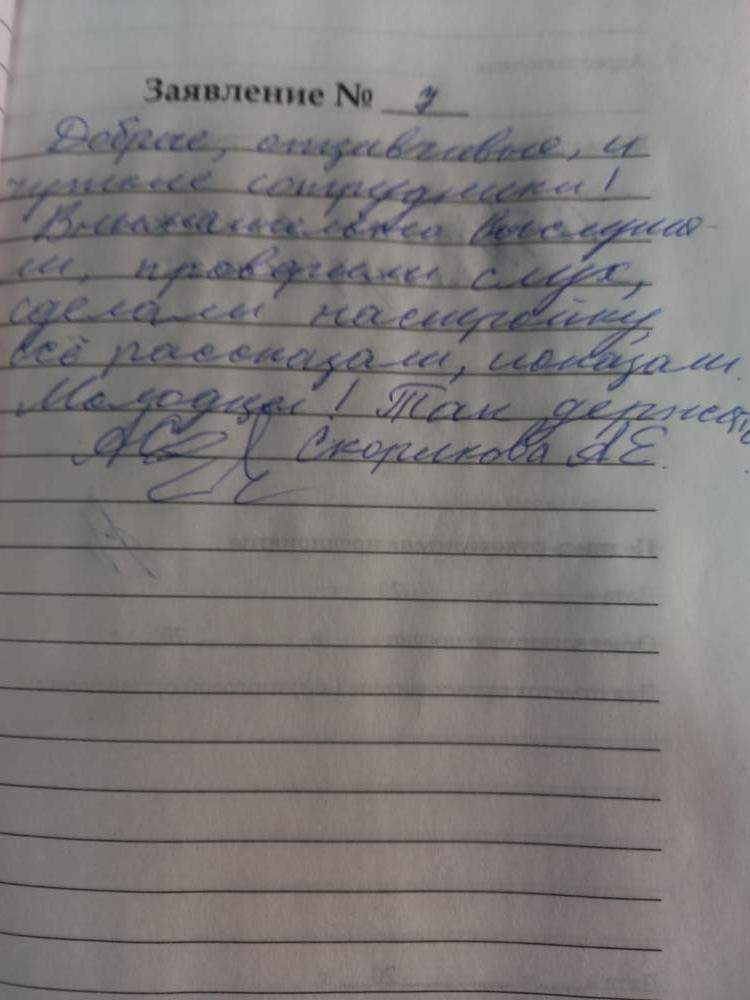 Заявление № 7
Добрые, отзывчивые, и
чуткие сотрудники!
Внимательно выслуша-
ли, проверили слух,
сделали настройку,
всё рассказали, показали.
Молодцы! Так держать
Скорикова АЕ.